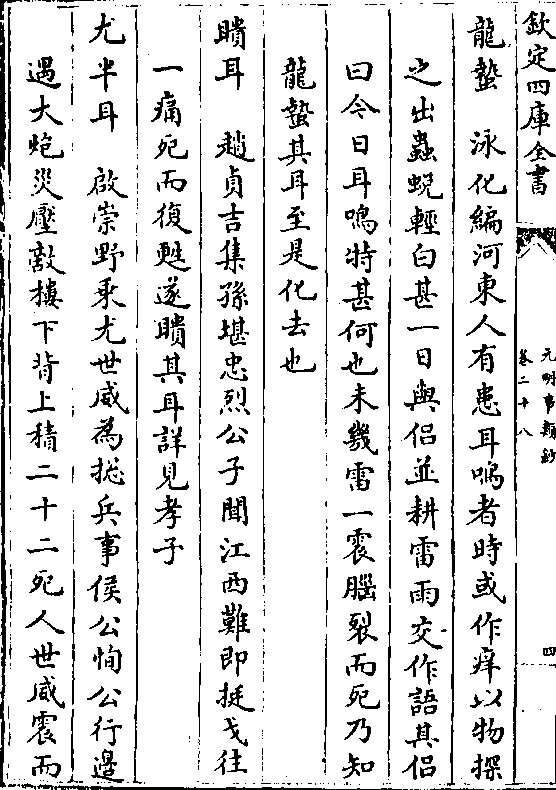 欽定四庫全書
元明事類鈔
卷二十八
四
龍蟄　泳化編河東人有患耳鳴者時或作痒以物探
之出蟲蛻輕白甚一日與侶並耕雷雨交作語其侶
曰今日耳鳴特甚何也未幾雷一震腦裂而死乃知
龍蟄其耳至是化去也
聵耳　趙貞吉集孫堪忠烈公子聞江西難即挺戈往
一痛死而復甦遂聵其耳詳見孝子
尤半耳　啟崇野乘尤世威為揔兵事侯公恂公行邊
遇大炮災壓敵樓下背上積二十二死人世威震而